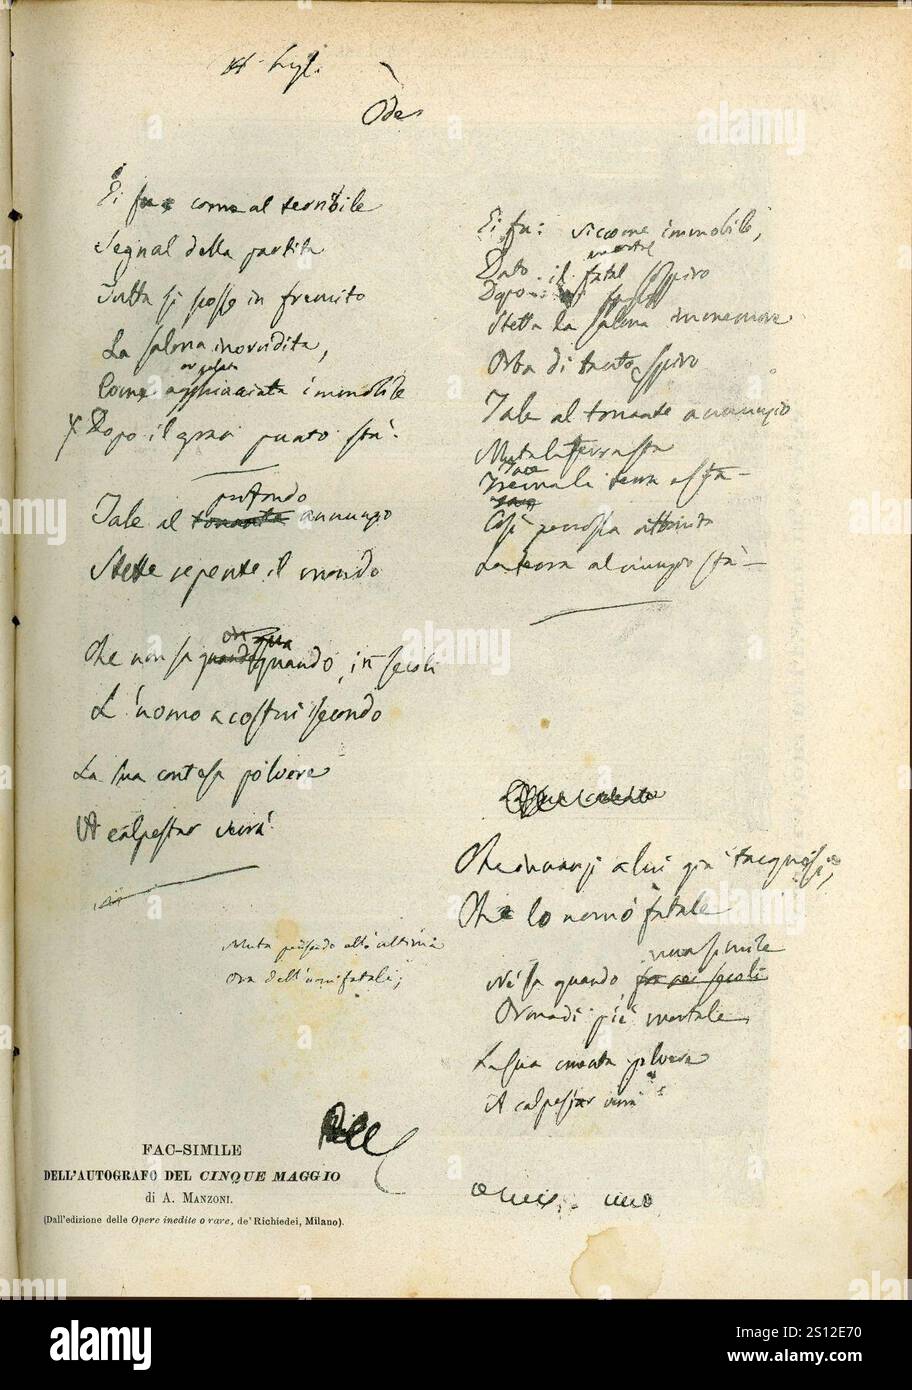 Ode
Ei fu come al terribile
Segnal della partita
Tutta si scosse in fremito
La salma inorridita,
Come agghiacciata immobile
Dopo il gran punto sta.
profondo
Tale al tonante annunzio
Stette repente il mondo
Che non sa quando quando, in secoli
L'uomo a costui secondo
La sua contesa polvere
A calpestar verrà.
Muta pensando all'ultima
Ora dell'uom fatale;
Ei fu: siccome immobile,
mortal
Dato il fatal sospiro
Dopo
Stette la salma immemore
Orba di tanto spiro
Tale al tonante annunzio
Muta la terra sta
la terra
Così percossa attonita
La terra al nunzio stà
Che innanzi a lui già tacquesi,
Che lo nomò fatale
una simile
Nè sa quando, fra sei secoli
Orma di piè mortale
La sua cruenta polvere
A calpestar verrà
FAC-SIMILE
DELL'AUTOGRAFO DEL CINQUE MAGGIO
di A. MANZONI.
(Dall'edizione delle Opere inedite o rare, de' Richiedei, Milano).
alamy
Image ID: 2S12E70
www.alamy.com